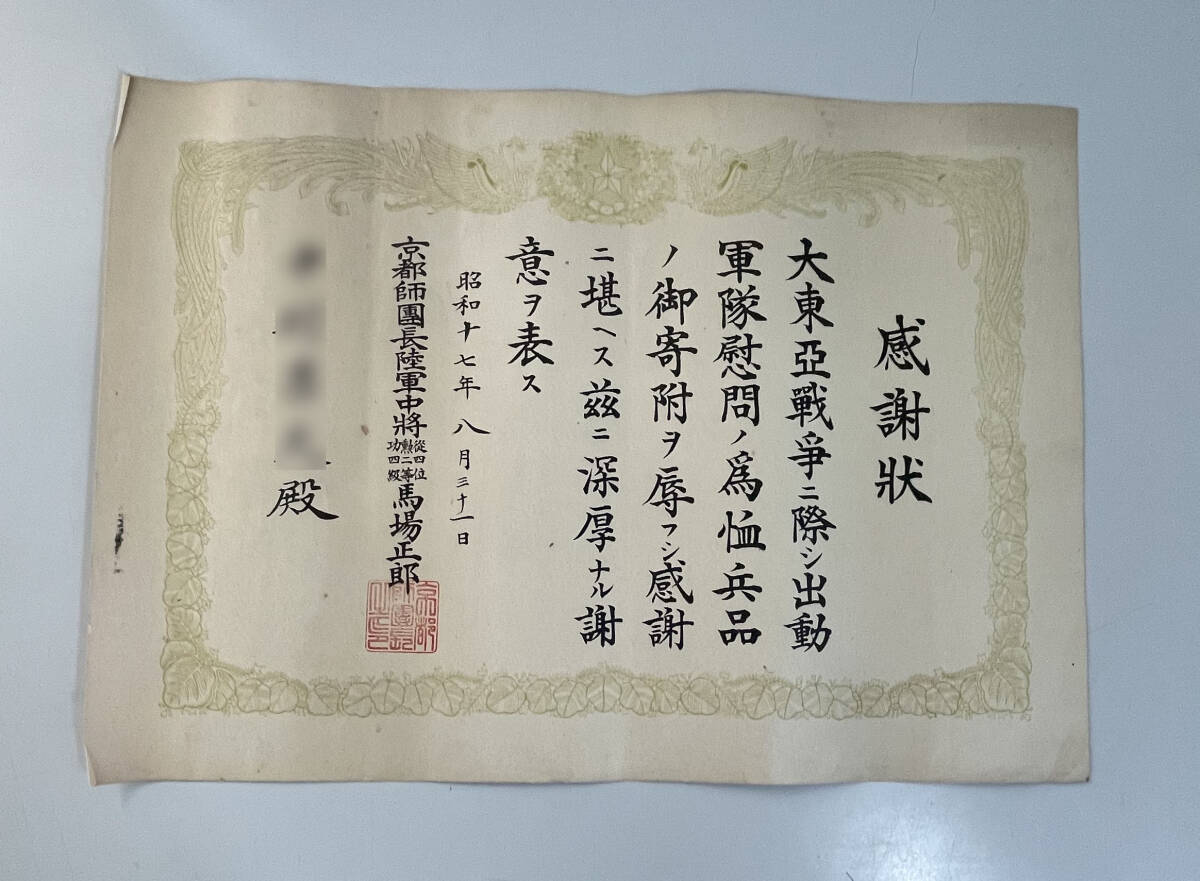 感謝狀
大東亞戰爭ニ際シ出動
軍隊慰問ノ爲恤兵品
ノ御寄附ヲ辱フシ感謝
ニ堪ヘス茲ニ深厚ナル謝
意ヲ表ス
昭和十七年八月三十一日
京都師團長陸軍中將從四位勲二等功四級馬場正郎
京都師團長之印
殿